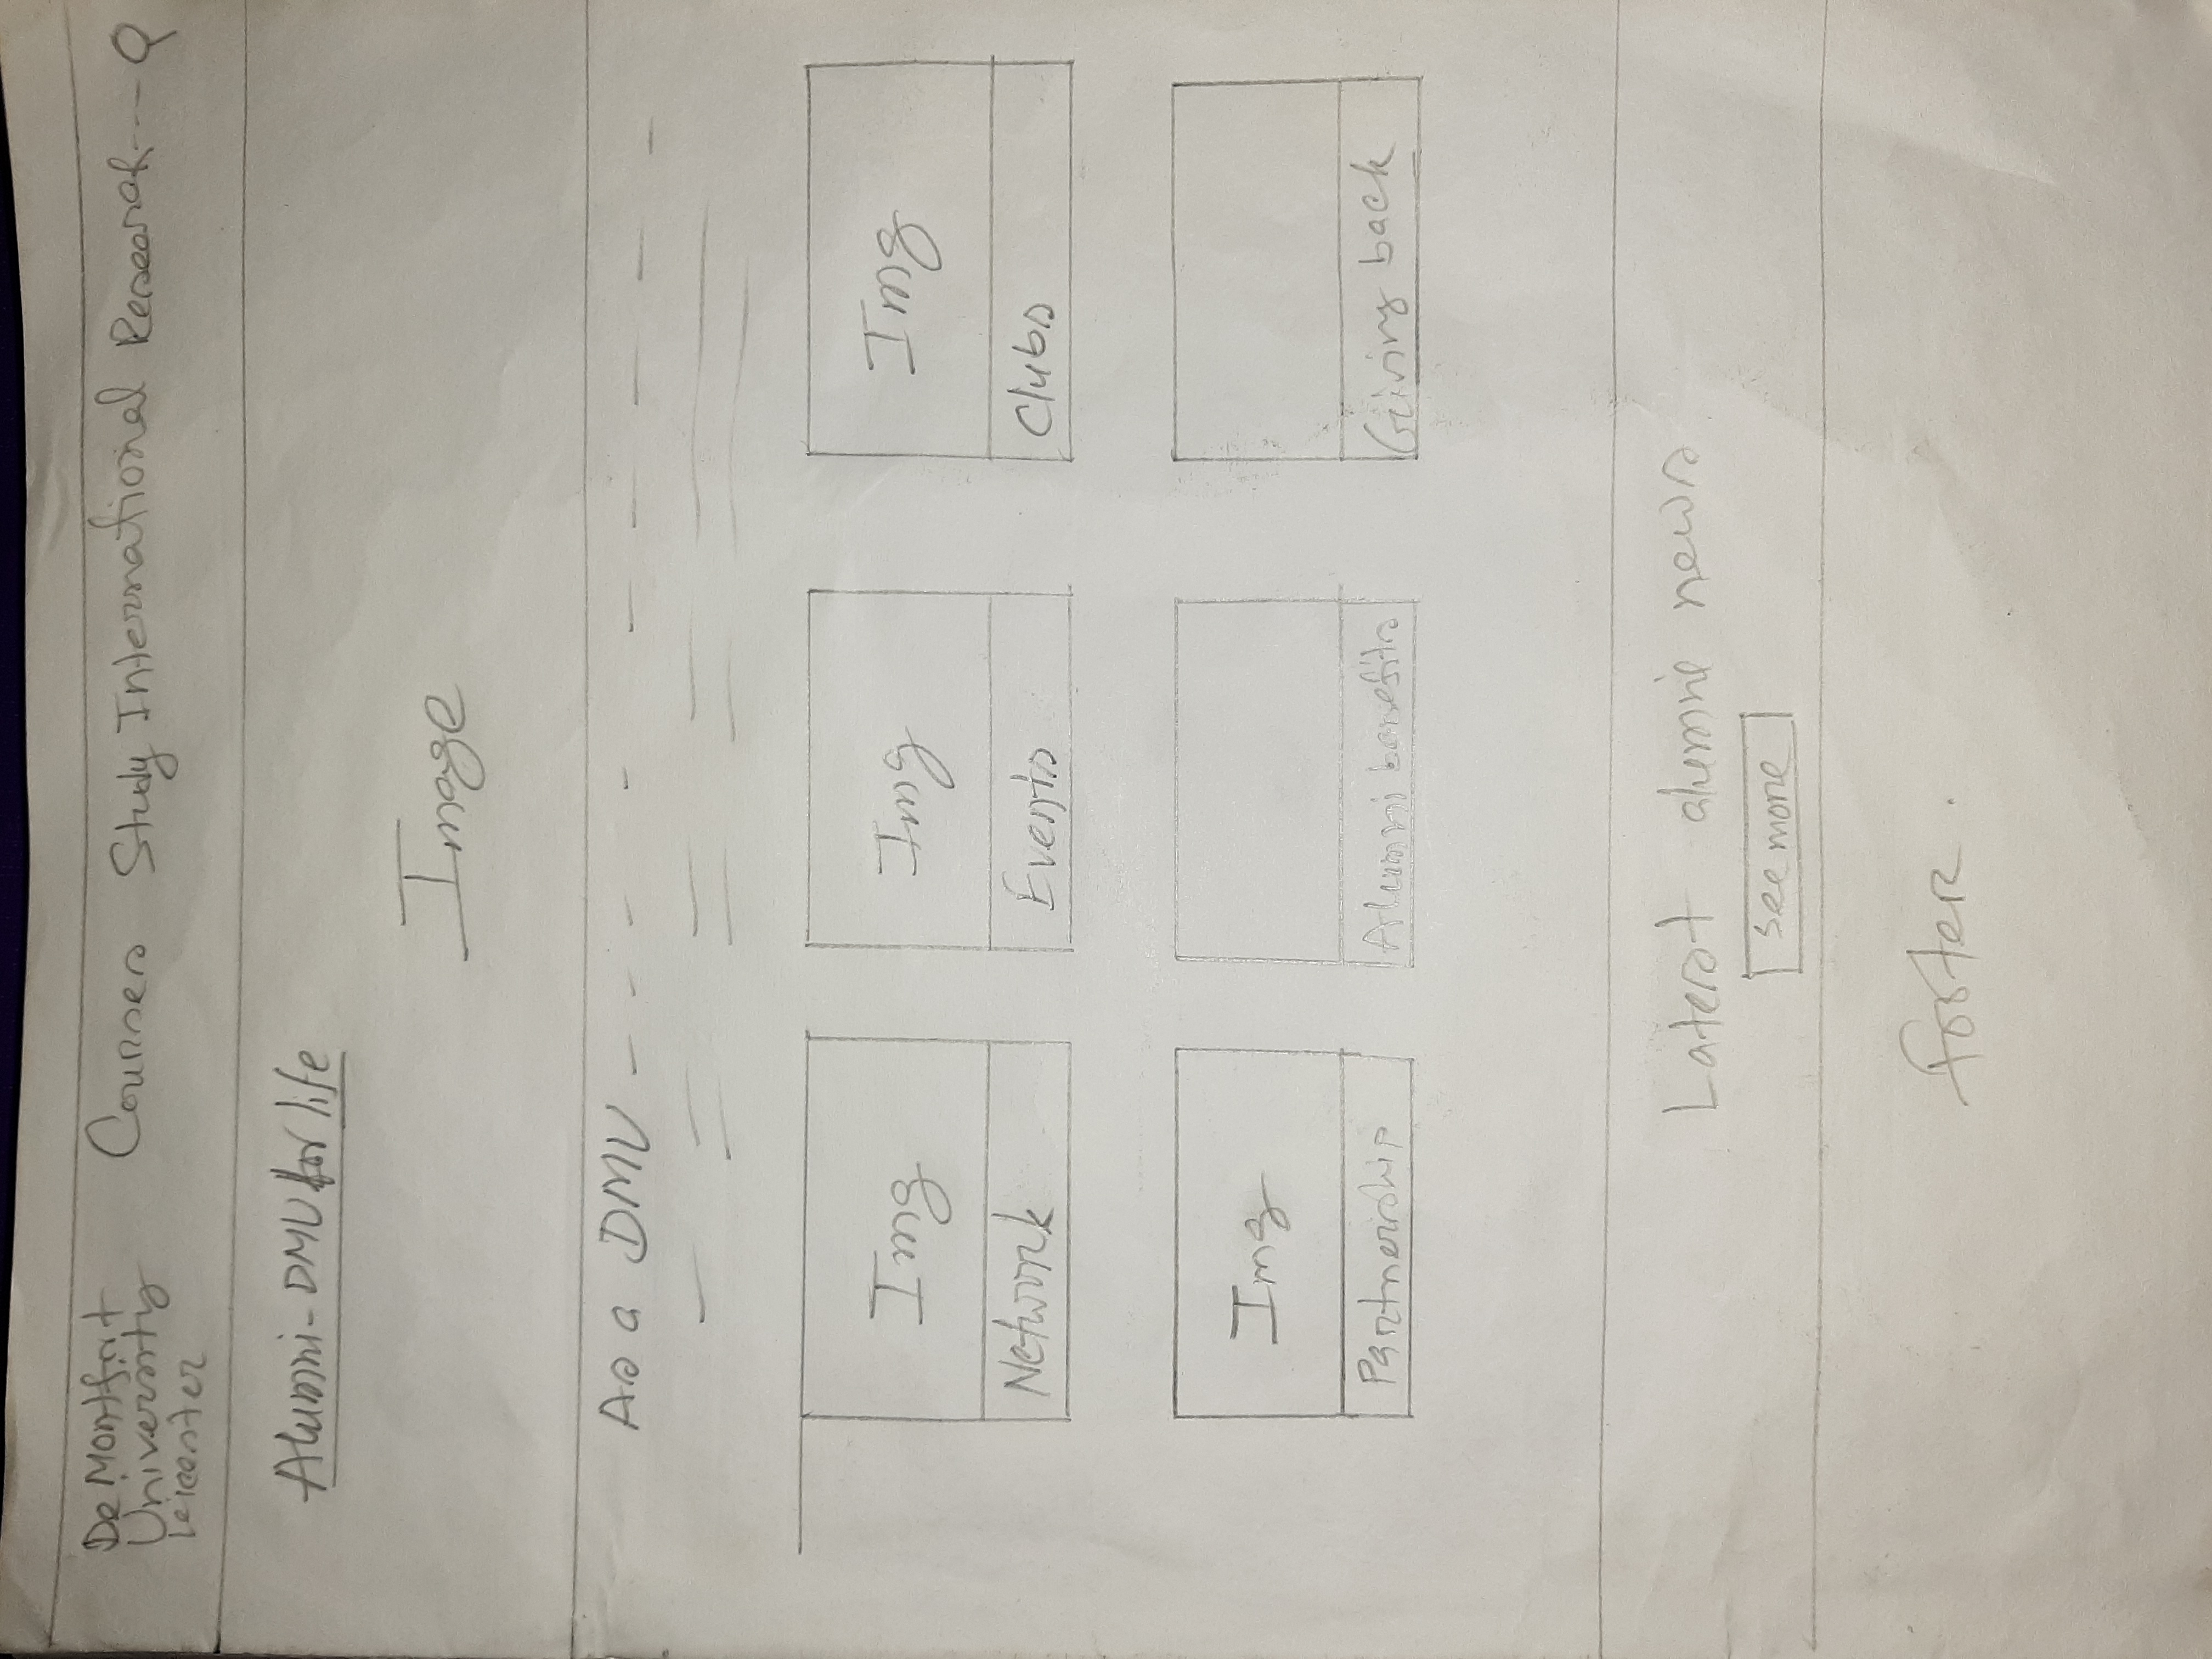 De Montfort
University
Leicester
Courses Study International Research---
Alumni-DMU for life
Image
As a DMU - - - - - - - - -
Img Img Img
Network Events Clubs
Img
Partnership Alumni benefits Giving back
Latest alumni news
see more
footer.